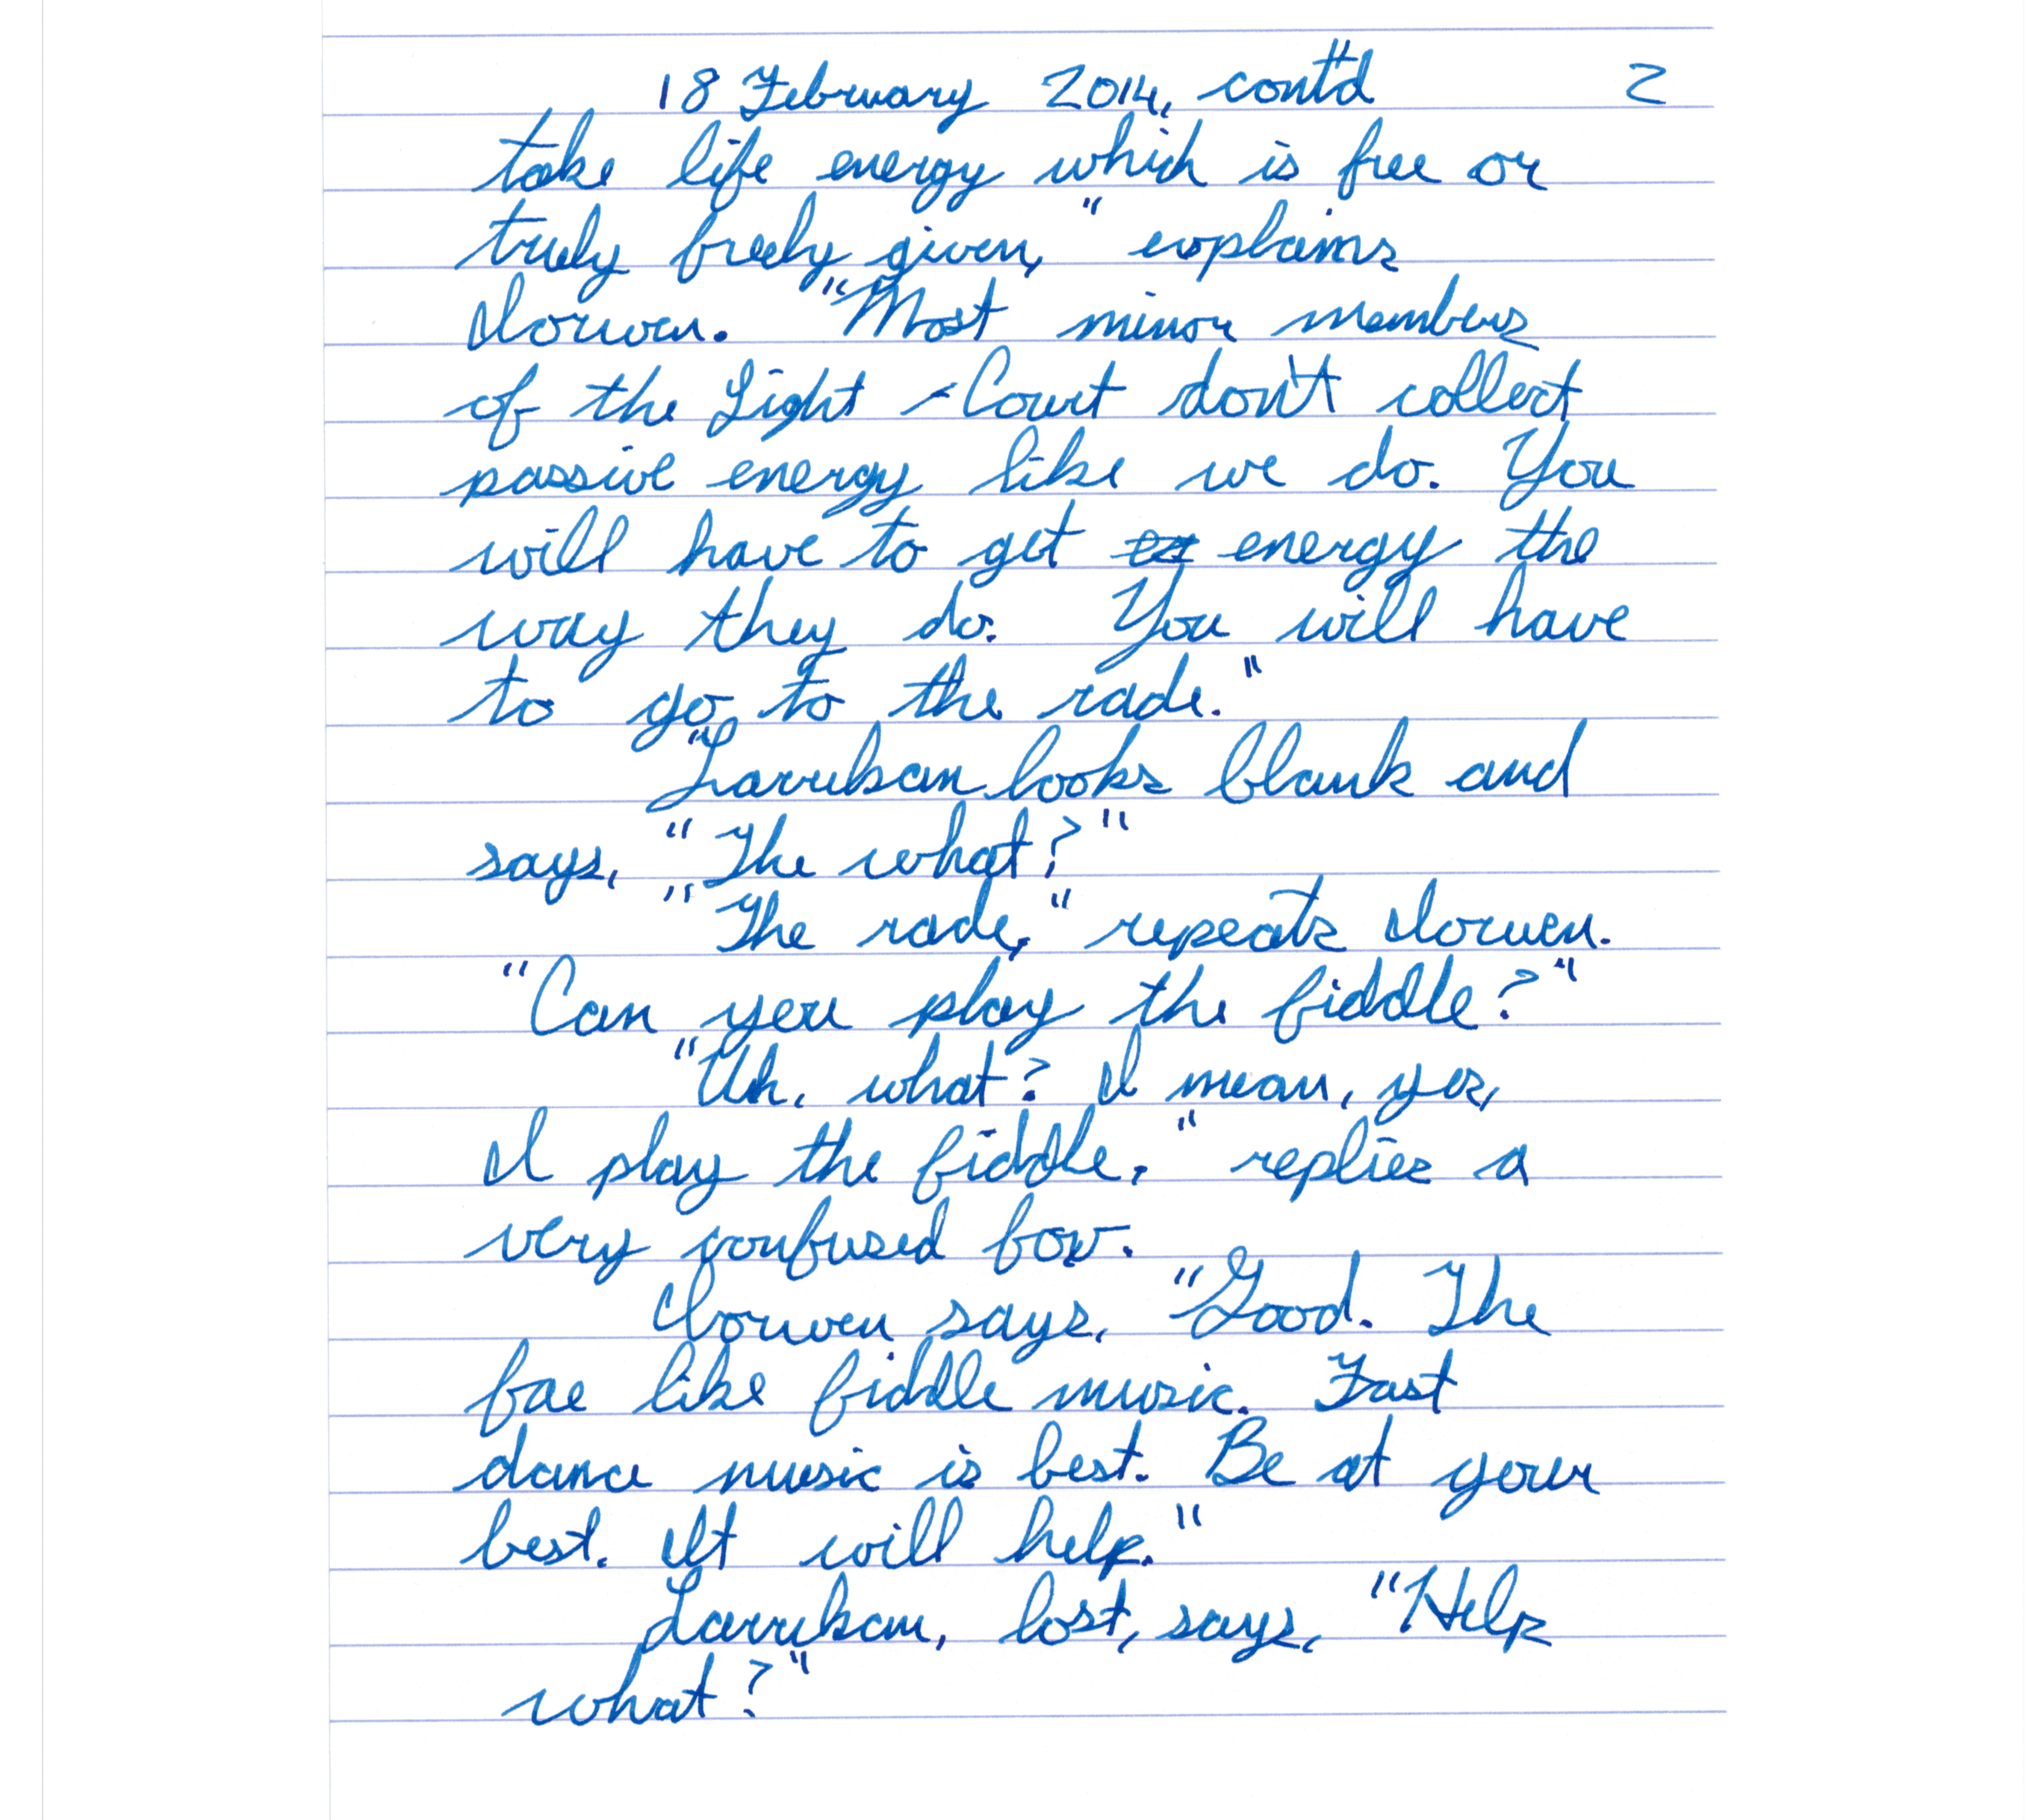 18 February 2014, cont'd 2
take life energy which is free or
truly freely given," explains
Iorwen. "Most minor members
of the Light-Court don't collect
passive energy like we do. You
will have to get energy the
way they do. You will have
to go to the rade."
"Larriksan looks blank and
says, "The what?"
"The rade," repeats Iorwen.
"Can you play the fiddle?"
"Uh, what? I mean, yes,
I play the fiddle," replies a
very confused fox.
Iorwen says, "Good. The
fae like fiddle music. Fast
dance music is best. Be at your
best. It will help."
Larriksan, lost, says, "Help
what?"